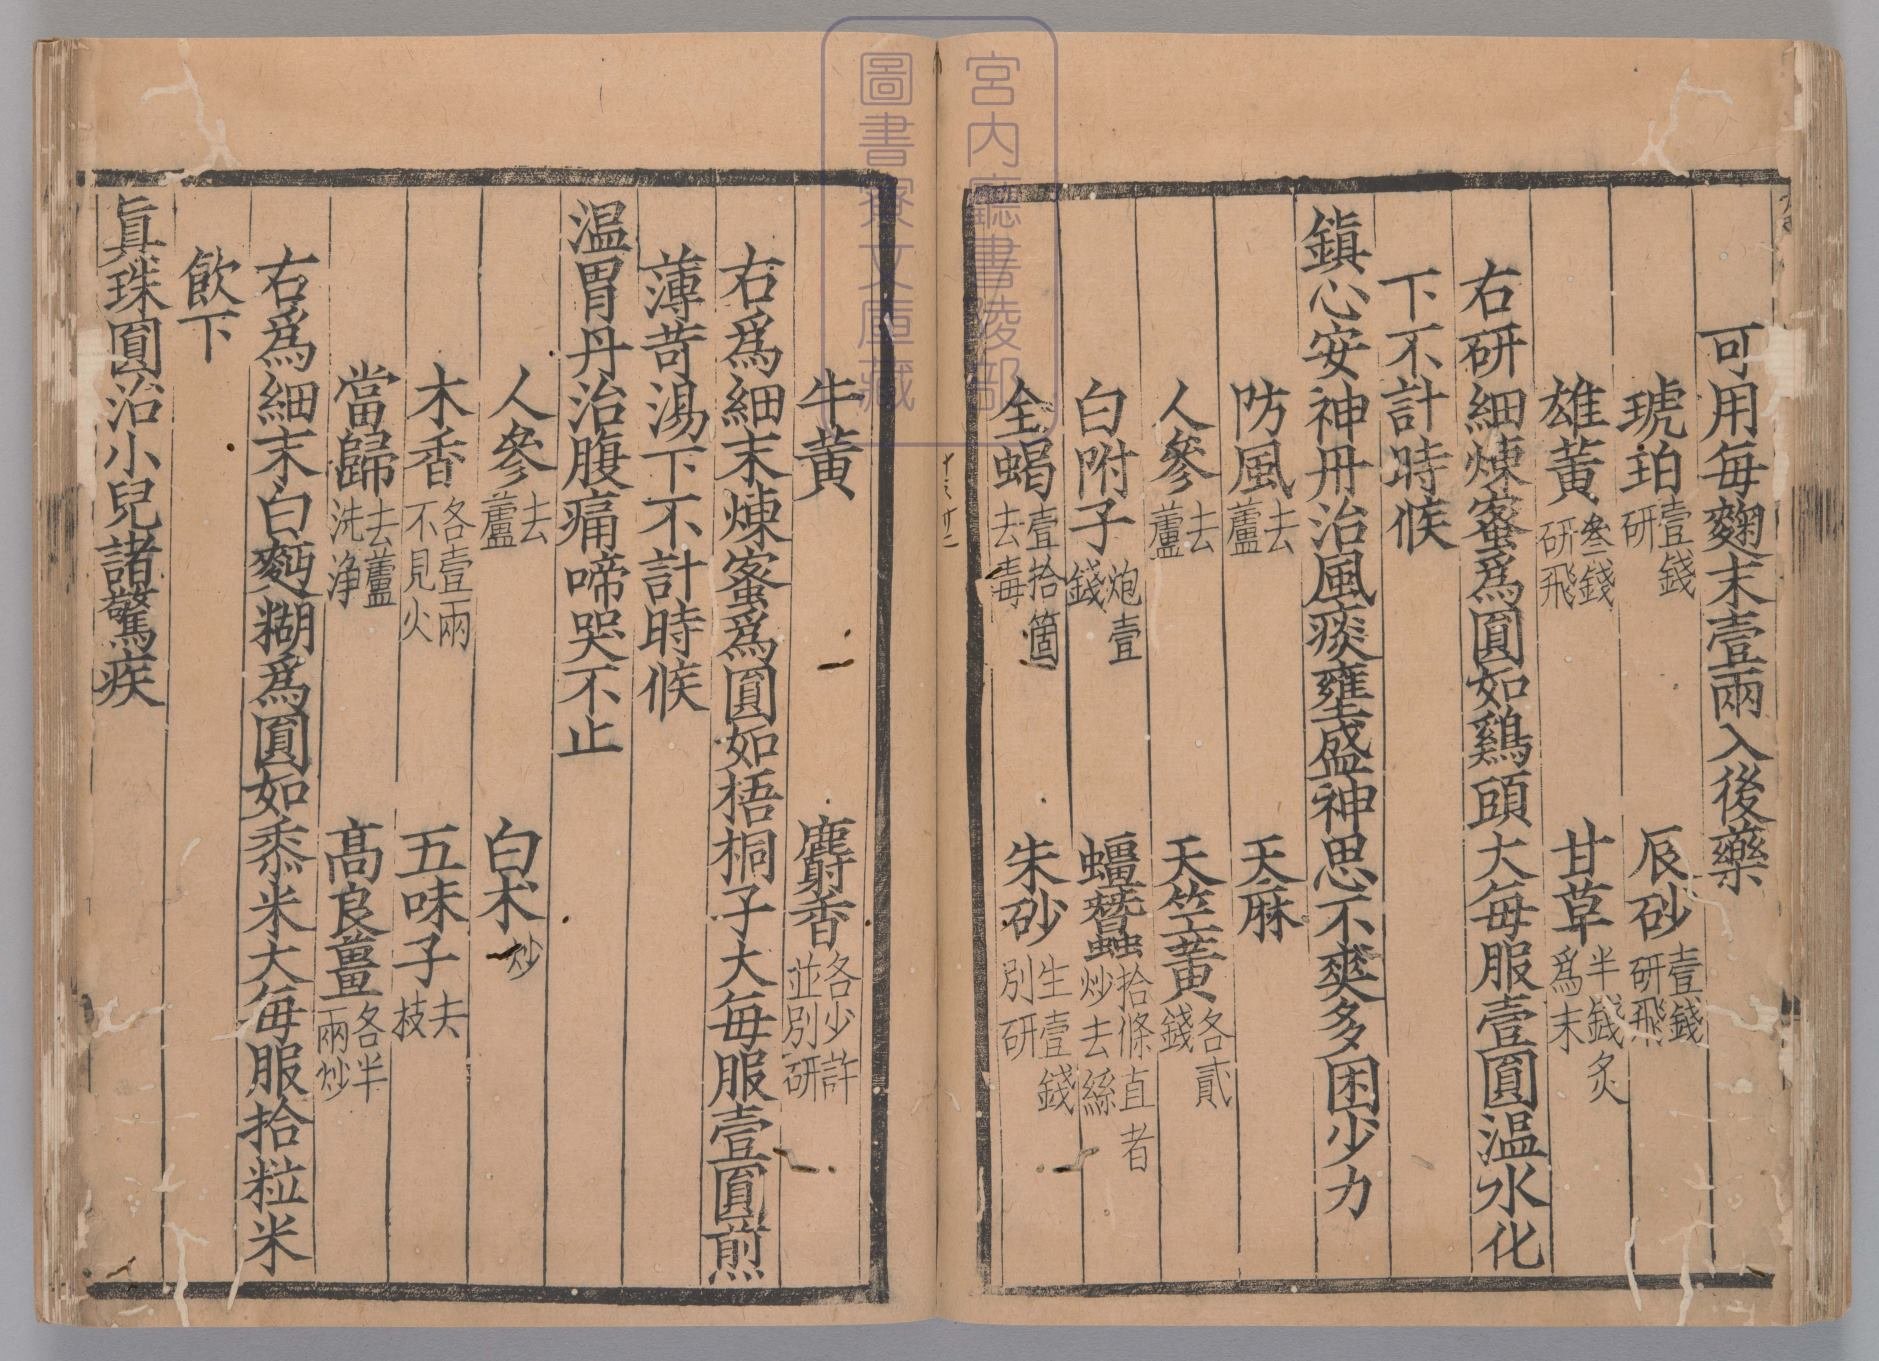 可用每麴末壹兩入後藥
琥珀壹錢研 辰砂壹錢研飛
雄黃叄錢研飛 甘草半錢炙爲末
右研細煉蜜爲圓如鷄頭大每服壹圓温水化
下不計時候
鎭心安神丹治風痰壅盛神思不爽多困少力
防風去蘆 天麻
人參去蘆 天竺黃各貳錢
白附子炮壹錢 蠶拾條直者炒去絲
全蝎壹拾箇去毒 朱砂生壹錢別研
牛黃 麝香各少許並別研
右爲細末煉蜜爲圓如梧桐子大每服壹圓煎
薄苛湯下不計時候
温胃丹治腹痛啼哭不止
人參去蘆 白朮炒
木香各壹兩不見火 五味子去枝
當歸去蘆洗净 高良薑各半兩炒
右爲細末白麪糊爲圓如黍米大每服拾粒米
飲下
眞珠圓治小兒諸驚疾
宮内廳書陵部
圖書寮文庫藏